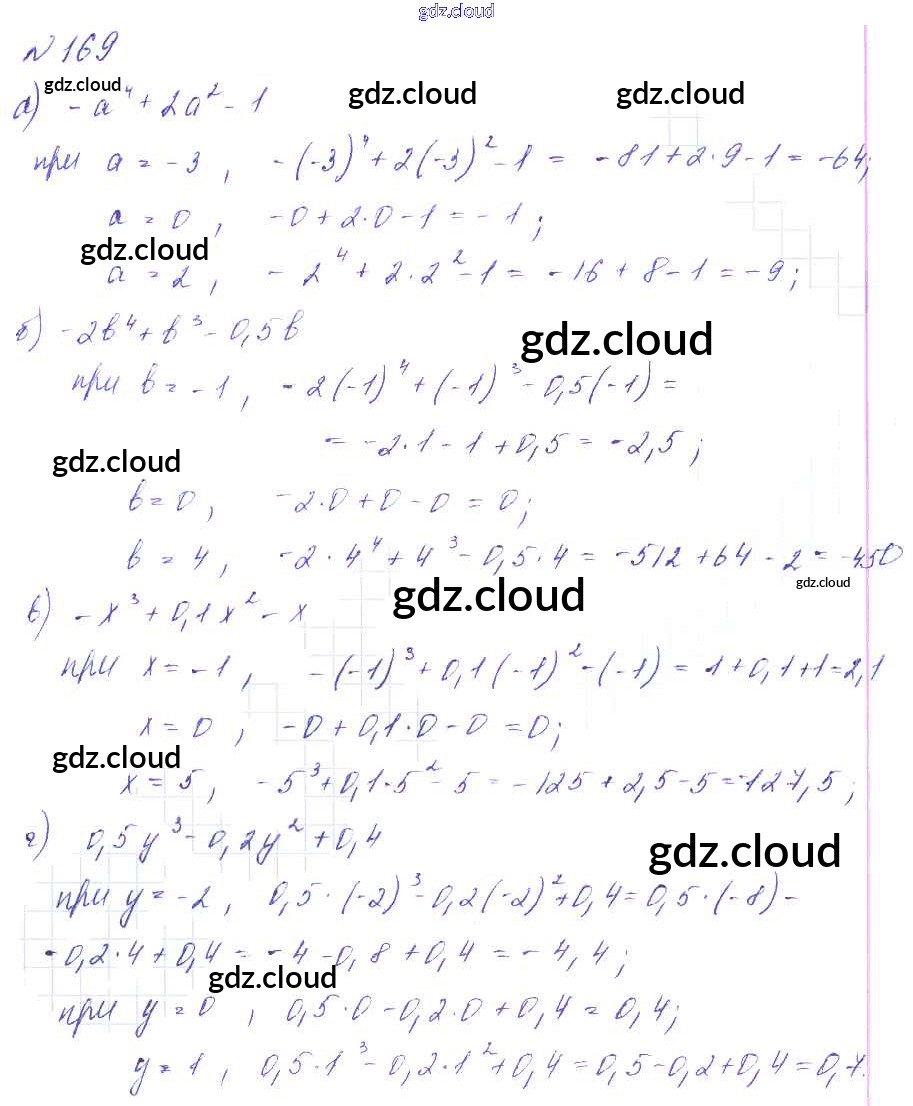 gdz.cloud
№ 169
gdz.cloud gdz.cloud gdz.cloud
а) -a⁴ + 2a² - 1
при a = -3, -(-3)⁴ + 2(-3)² - 1 = -81 + 2·9 - 1 = -64;
a = 0, -0 + 2·0 - 1 = -1;
gdz.cloud
a = 2, -2⁴ + 2·2² - 1 = -16 + 8 - 1 = -9;
б) -2b⁴ + b³ - 0,5b
gdz.cloud
при b = -1, -2(-1)⁴ + (-1)³ - 0,5(-1) =
= -2·1 - 1 + 0,5 = -2,5;
gdz.cloud
b = 0, -2·0 + 0 - 0 = 0;
b = 4, -2·4⁴ + 4³ - 0,5·4 = -512 + 64 - 2 = -450
gdz.cloud
gdz.cloud
в) -x³ + 0,1x² - x
при x = -1, -(-1)³ + 0,1(-1)² - (-1) = 1 + 0,1 + 1 = 2,1
x = 0, -0 + 0,1·0 - 0 = 0;
gdz.cloud
x = 5, -5³ + 0,1·5² - 5 = -125 + 2,5 - 5 = -127,5;
г) 0,5y³ - 0,2y² + 0,4
gdz.cloud
при y = -2, 0,5·(-2)³ - 0,2(-2)² + 0,4 = 0,5·(-8) -
- 0,2·4 + 0,4 = -4 - 0,8 + 0,4 = -4,4;
gdz.cloud
при y = 0, 0,5·0 - 0,2·0 + 0,4 = 0,4;
y = 1, 0,5·1³ - 0,2·1² + 0,4 = 0,5 - 0,2 + 0,4 = 0,7.